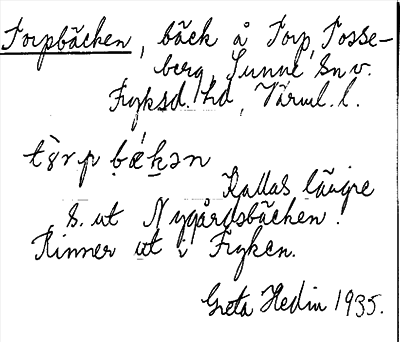 Torpbäcken, bäck å Torp, Tosse-
berg, Sunne sn v.
Fryksd. hd, Värml. l.
Kallas längre
s. ut Nygårdsbäcken.
Rinner ut i Fryken.
Greta Hedin 1935.